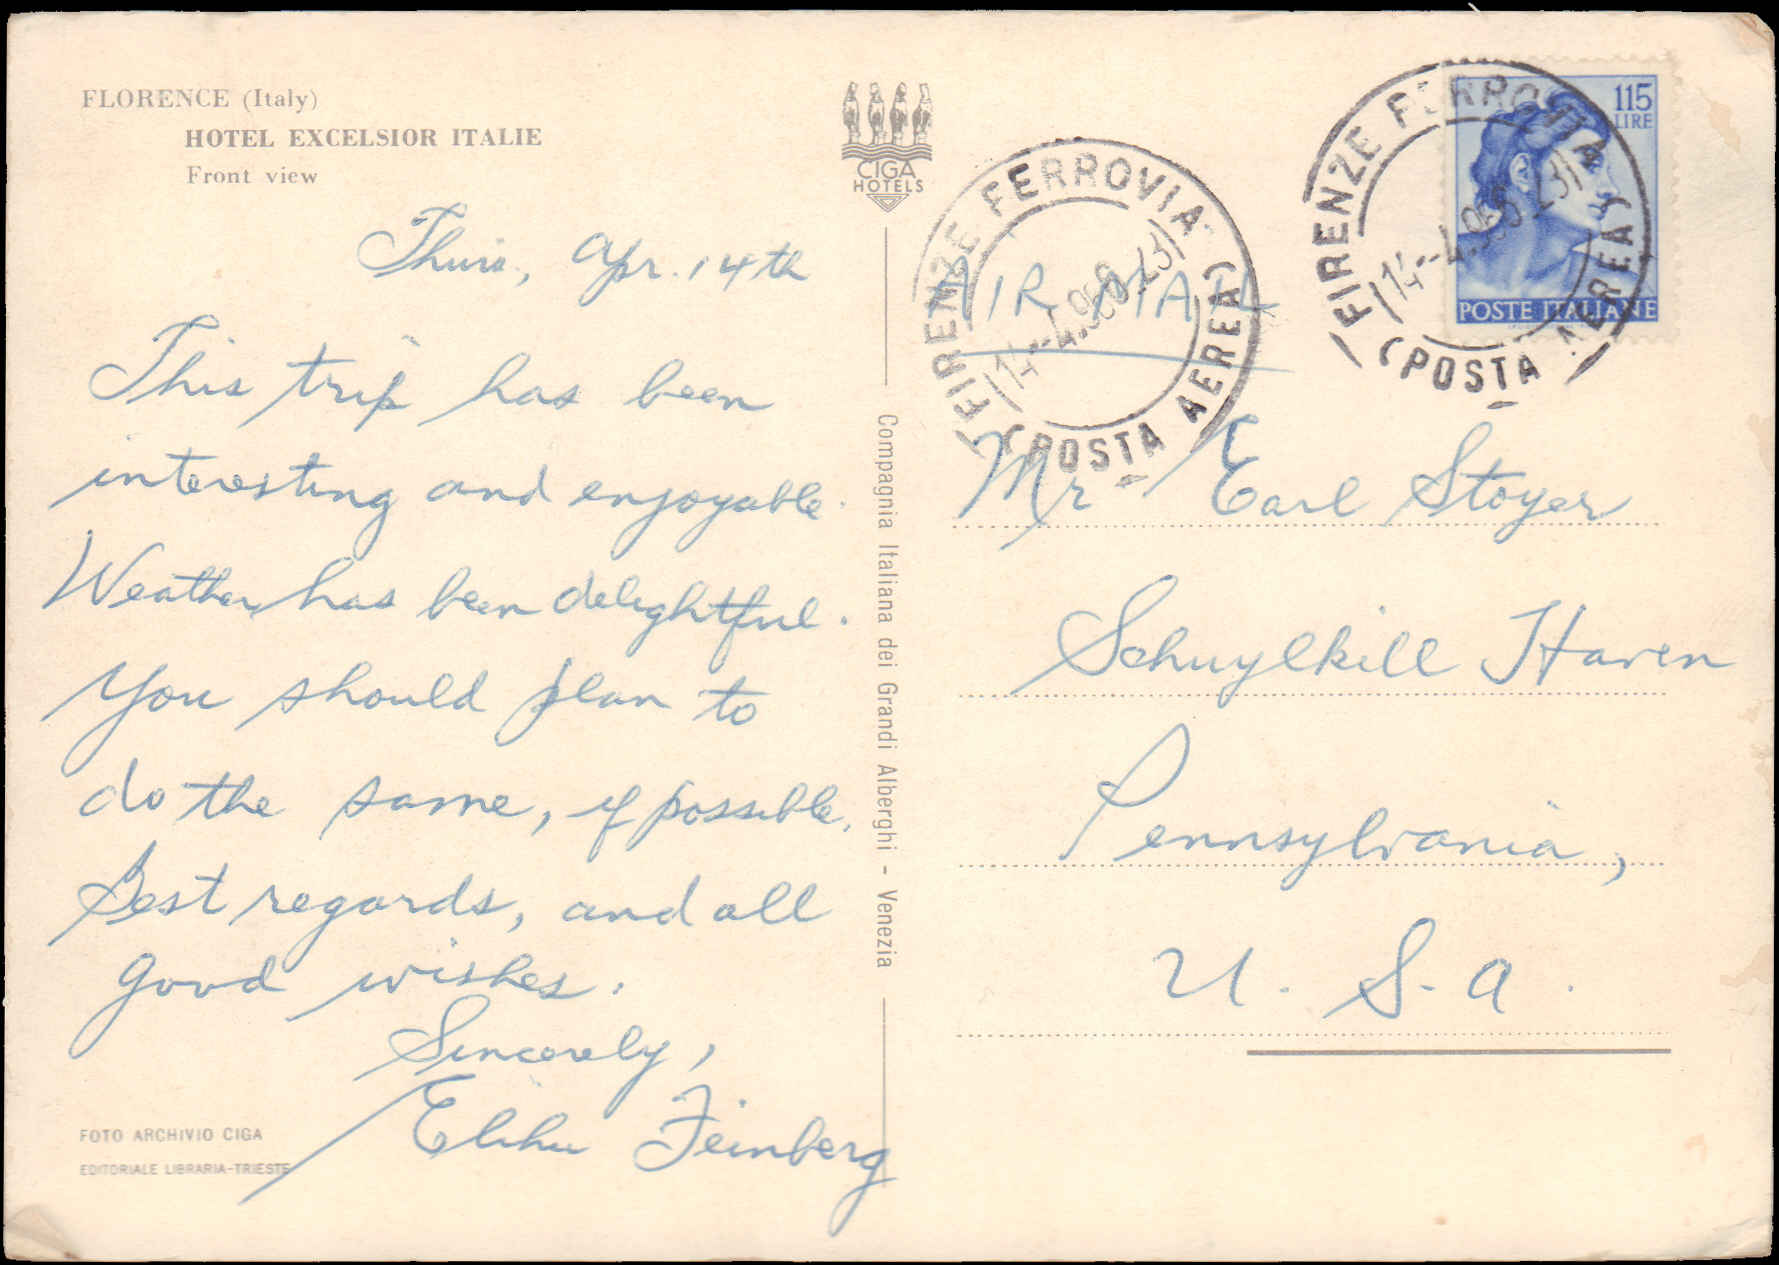 FLORENCE (Italy)
HOTEL EXCELSIOR ITALIE
Front view
CIGA
HOTELS
Thurs., Apr. 14th
This trip has been
interesting and enjoyable.
Weather has been delightful.
You should plan to
do the same, if possible.
Best regards, and all
good wishes.
Sincerely,
Elihu Feinberg
FOTO ARCHIVIO CIGA
EDITORIALE LIBRARIA-TRIESTE
Compagnia Italiana dei Grandi Alberghi - Venezia
AIR MAIL
FIRENZE FERROVIA
(POSTA AEREA)
FIRENZE FERROVIA
(POSTA AEREA)
115
LIRE
POSTE ITALIANE
Mr Earl Stoyer
Schuylkill Haven
Pennsylvania,
U. S. A.